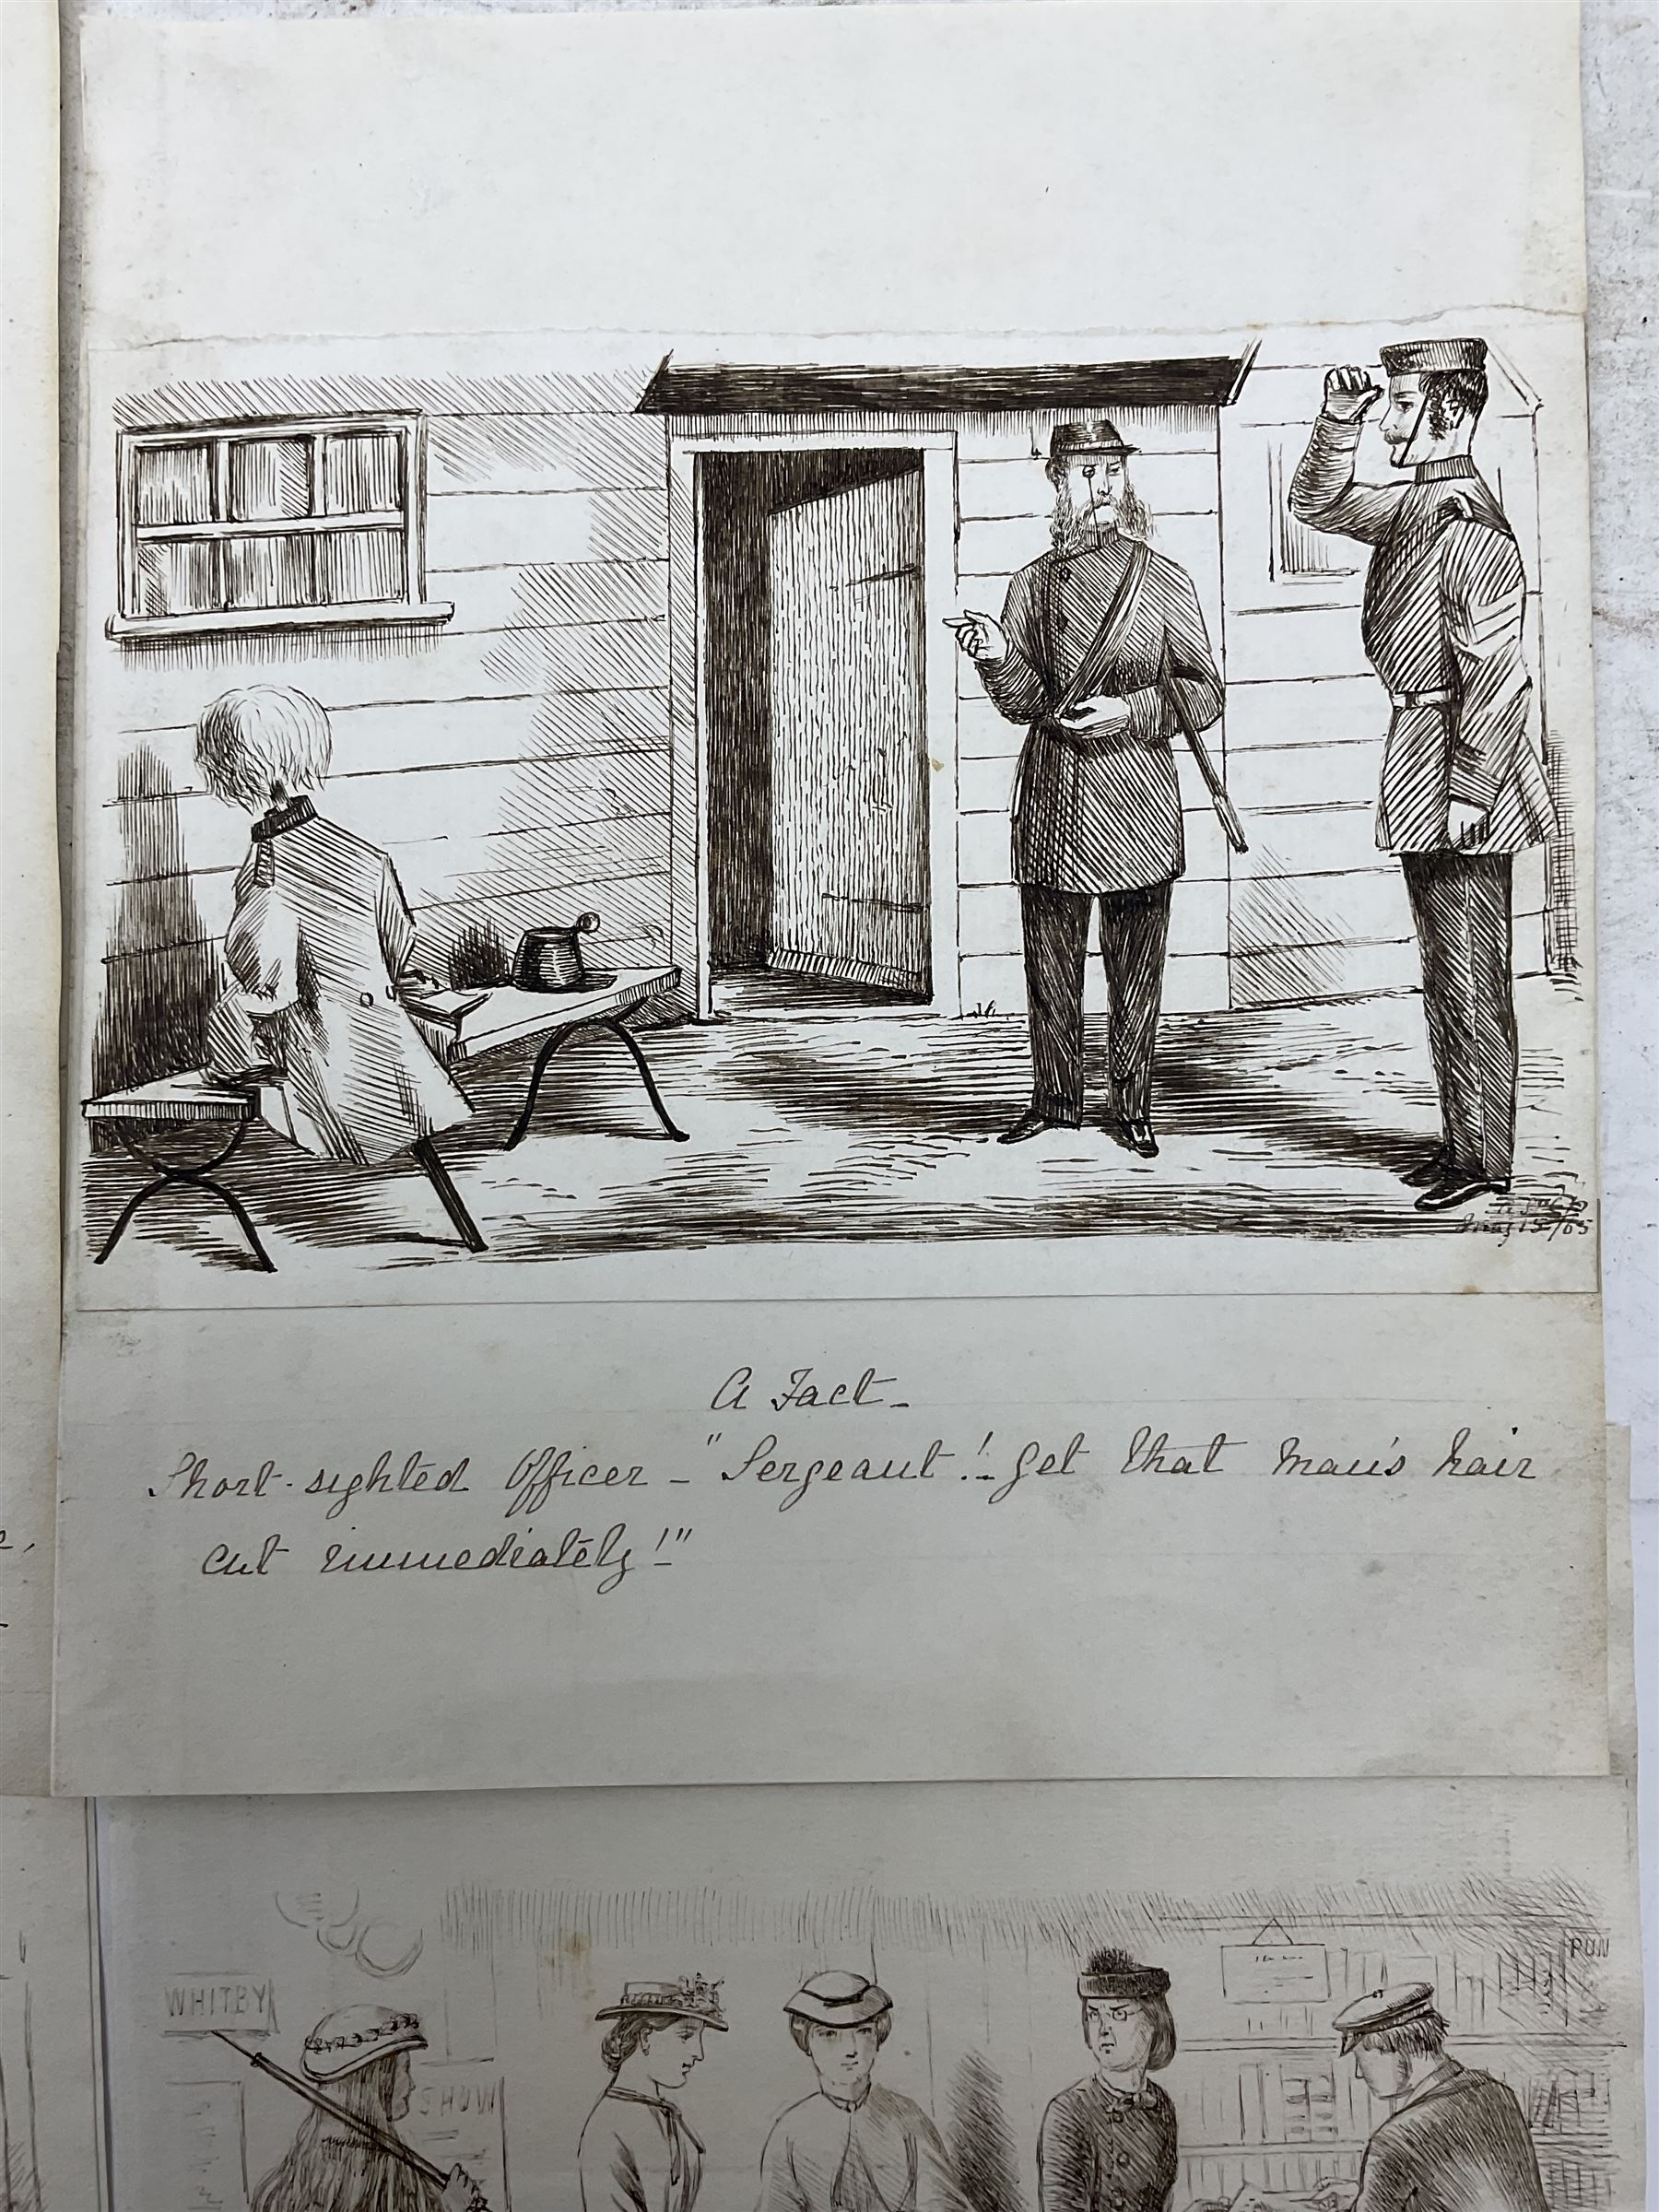 May 15/65
A Fact-
Short-sighted Officer - "Sergeant! Get that man's hair
cut immediately!"
WHITBY
PUN